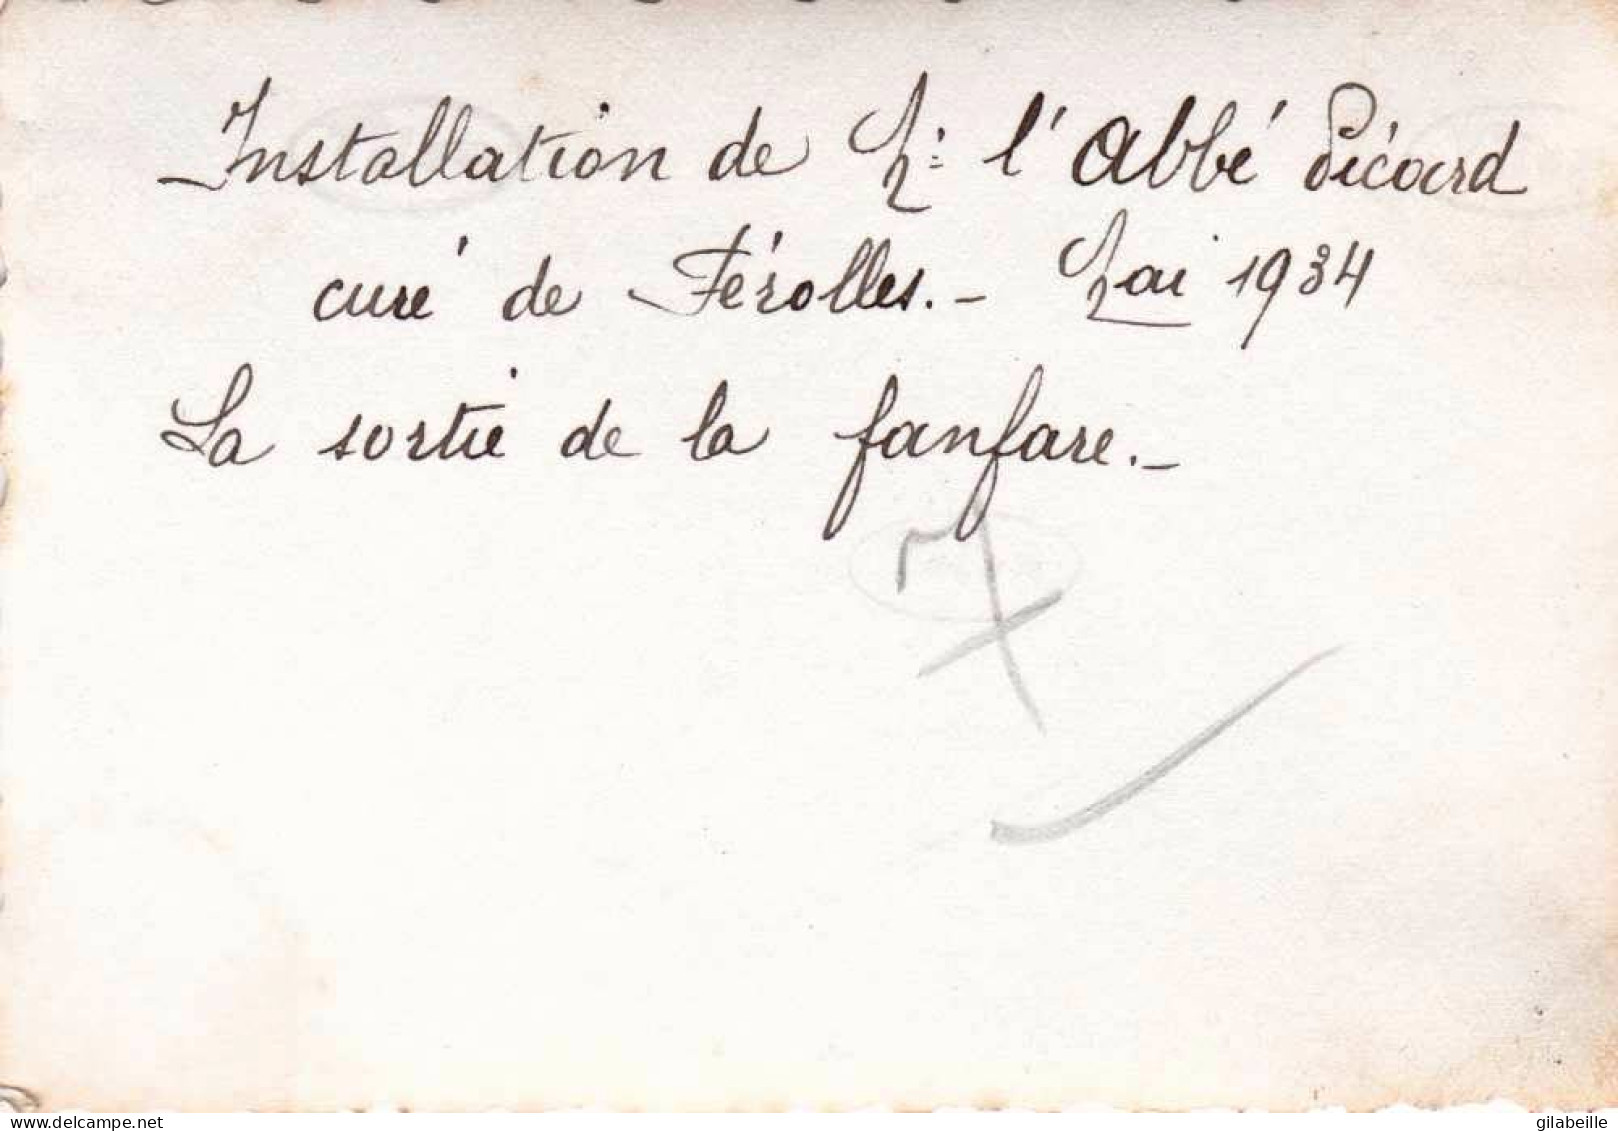 Installation de M: l'Abbé Picard
curé de Férolles. - Mai 1934
La sortie de la fanfare. -
7
www.delcampe.net
gilabeille